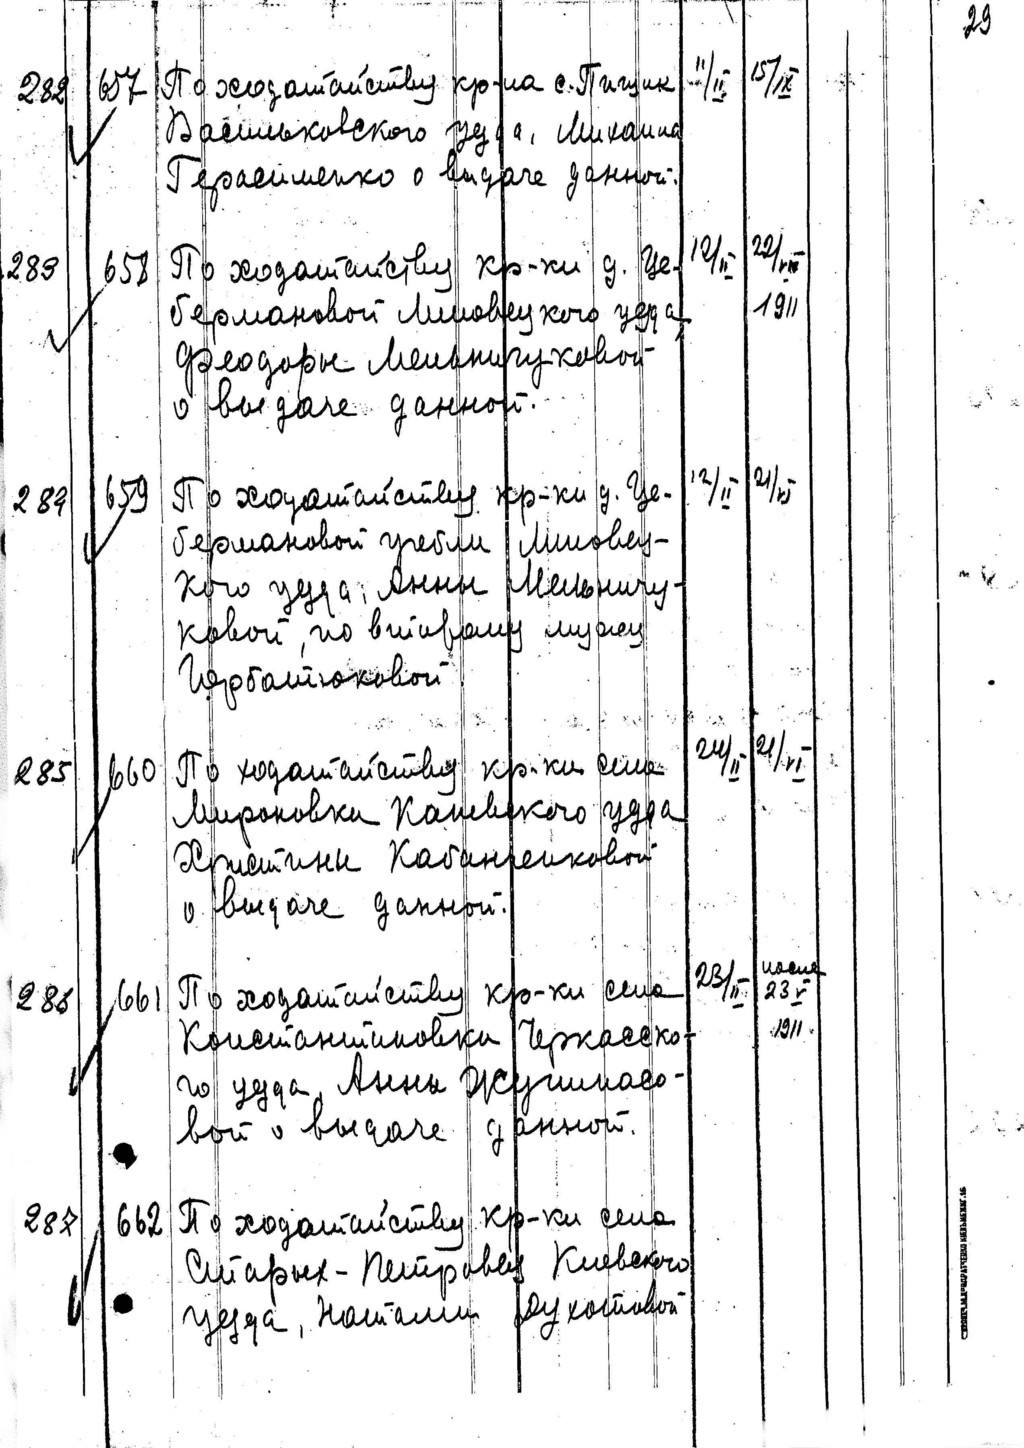 29
282 657 По ходатайству кр-на с. Пищик 11/II 15/IX
Васильковского уезда, Михаила
Герасименко о выдаче данной.
283 658 По ходатайству кр-ки д. Це- 12/II 22/VIII
бермановой Липовецкого уезда, 1911
Феодоры Мельничуковой
о выдаче данной.
284 659 По ходатайству кр-ки д. Це- 12/II 21/VI
бермановой гребли Липовец-
кого уезда, Анны Мельничу-
ковой, по второму мужу
Горбатюковой
285 660 По ходатайству кр-ки села 24/II 21/VI
Мироновки Каневского уезда
Христины Кабанченковой
о выдаче данной.
286 661 По ходатайству кр-ки села 23/II после
Константиновки Черкасско- 23 V
го уезда, Анны 1911
вой о выдаче данной.
287 662 По ходатайству кр-ки села
Старых-Петровец Киевского
уезда, Наталии